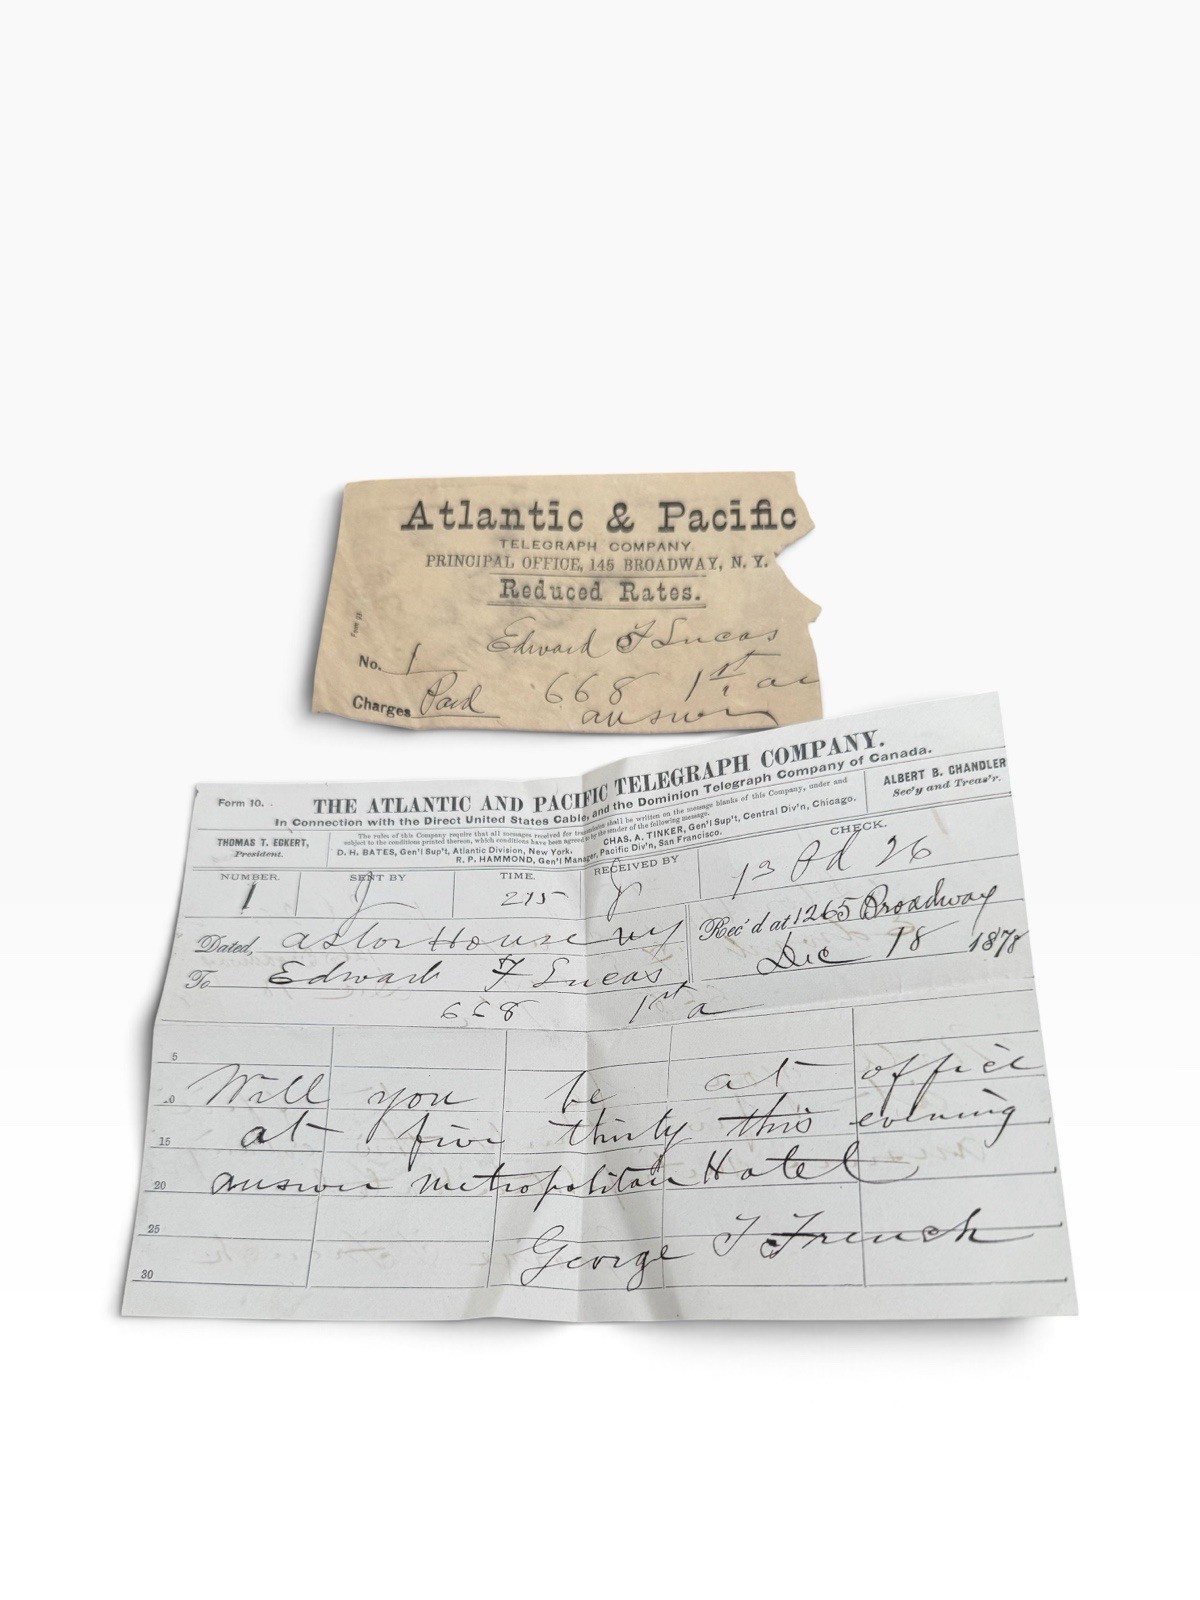 Atlantic & Pacific
TELEGRAPH COMPANY.
PRINCIPAL OFFICE, 145 BROADWAY, N. Y.
Reduced Rates.
Edward F Lucas
No. 1
668 1st av
Charges Paid
answer
Form 10.
THE ATLANTIC AND PACIFIC TELEGRAPH COMPANY.
In Connection with the Direct United States Cable, and the Dominion Telegraph Company of Canada.
THOMAS T. ECKERT,
President.
The rules of this Company require that all messages received for transmission shall be written on the message blanks of this Company, under and
subject to the conditions printed thereon, which conditions have been agreed to by the sender of the following message.
D. H. BATES, Gen'l Sup't, Atlantic Division, New York. CHAS. A. TINKER, Gen'l Sup't, Central Div'n, Chicago.
R. P. HAMMOND, Gen'l Manager, Pacific Div'n, San Francisco.
ALBERT B. CHANDLER
Sec'y and Treas'r.
NUMBER. SENT BY TIME. RECEIVED BY CHECK.
1 J 215 J 13 Pd 26
Dated, Astor House NY
Rec'd at 1265 Broadway
Dec 18 1878
To Edward F Lucas
668 1st a
5
Will you be at office
at five thirty this evening
15
answer Metropolitan Hotel
20
25
George T French
30